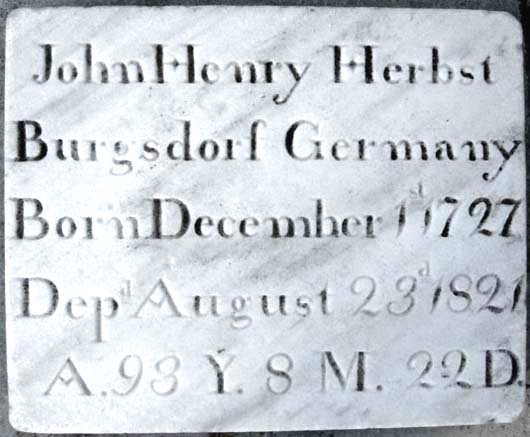 John Henry Herbst
Burgsdorf Germany
Born December 1ᵈ 1727
Depᵈ August 23ᵈ 1821
A. 93 Y. 8 M. 22 D.